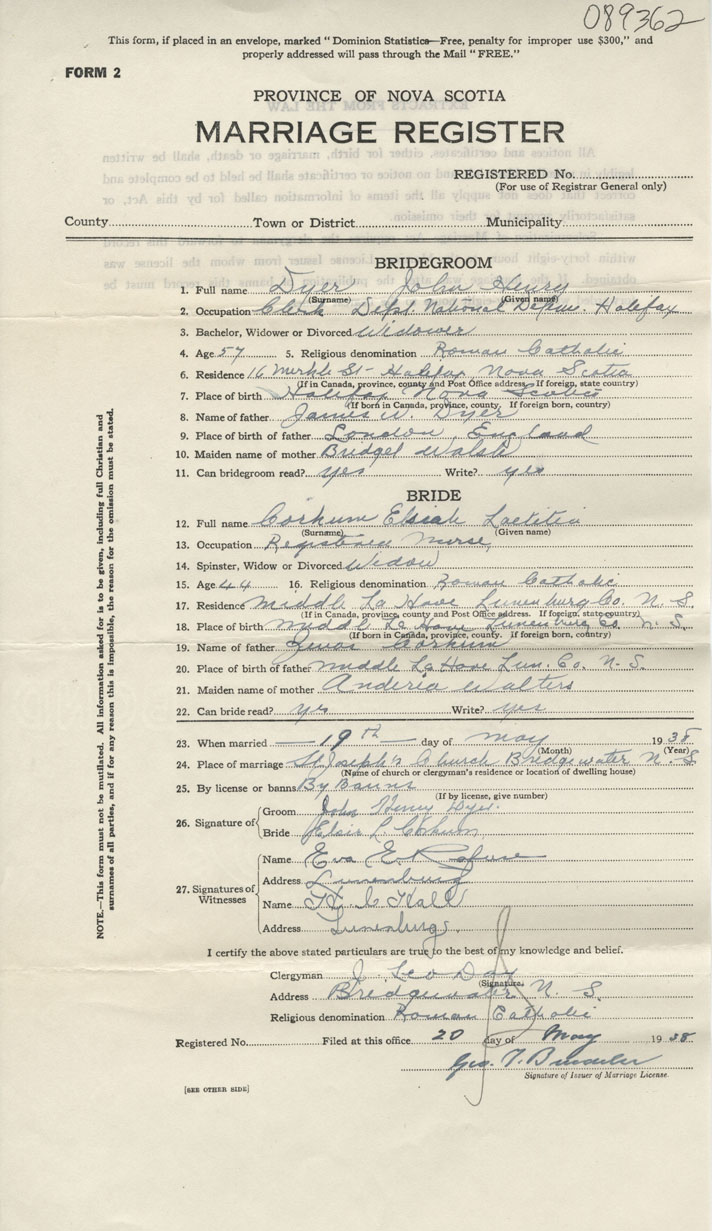 089362
This form, if placed in an envelope, marked "Dominion Statistics—Free, penalty for improper use $300," and
properly addressed will pass through the Mail "FREE."
FORM 2
PROVINCE OF NOVA SCOTIA
MARRIAGE REGISTER
REGISTERED No.
(For use of Registrar General only)
County Town or District Municipality
BRIDEGROOM
1. Full name Dyer John Henry
(Surname) (Given name)
2. Occupation Clerk Dept. National Halifax
3. Bachelor, Widower or Divorced Widower
4. Age 57 5. Religious denomination Roman Catholic
6. Residence 16 St- Halifax Nova Scotia
(If in Canada, province, county and Post Office address. If foreign, state country)
7. Place of birth Halifax Nova Scotia
(If born in Canada, province, county. If foreign born, country)
8. Name of father James W. Dyer
9. Place of birth of father London, England
10. Maiden name of mother Bridget Walsh
11. Can bridegroom read? yes Write? yes
BRIDE
12. Full name Corkum Elsiah Laetitia
(Surname) (Given name)
13. Occupation Registered Nurse,
14. Spinster, Widow or Divorced Widow
15. Age 44 16. Religious denomination Roman Catholic
17. Residence Middle La Have Lunenburg Co. N. S.
(If in Canada, province, county and Post Office address. If foreign, state country)
18. Place of birth Middle La Have Lunenburg Co. N. S.
(If born in Canada, province, county. If foreign born, country)
19. Name of father Corkum
20. Place of birth of father Middle La Have Lun. Co. N. S.
21. Maiden name of mother Anderia Walters
22. Can bride read? yes Write? yes
23. When married 19th day of May 1938
(Month) (Year)
24. Place of marriage St Joseph's Church Bridgewater N. S.
(Name of church or clergyman's residence or location of dwelling house)
25. By license or banns By Banns
(If by license, give number)
26. Signature of
Groom John Henry Dyer.
Bride Elsie L. Corkum
27. Signatures of Witnesses
Name Eva E. Rafuse
Address Lunenburg
Name Hall
Address Lunenburg.
I certify the above stated particulars are true to the best of my knowledge and belief.
Clergyman J. Leo Day
(Signature)
Address Bridgewater N. S.
Religious denomination Roman Catholic
Registered No. Filed at this office 20 day of May 1938
Geo. T.
Signature of Issuer of Marriage License.
[SEE OTHER SIDE]
NOTE.—This form must not be mutilated. All information asked for is to be given, including full Christian and
surnames of all parties, and if for any reason this is impossible, the reason for the omission must be stated.